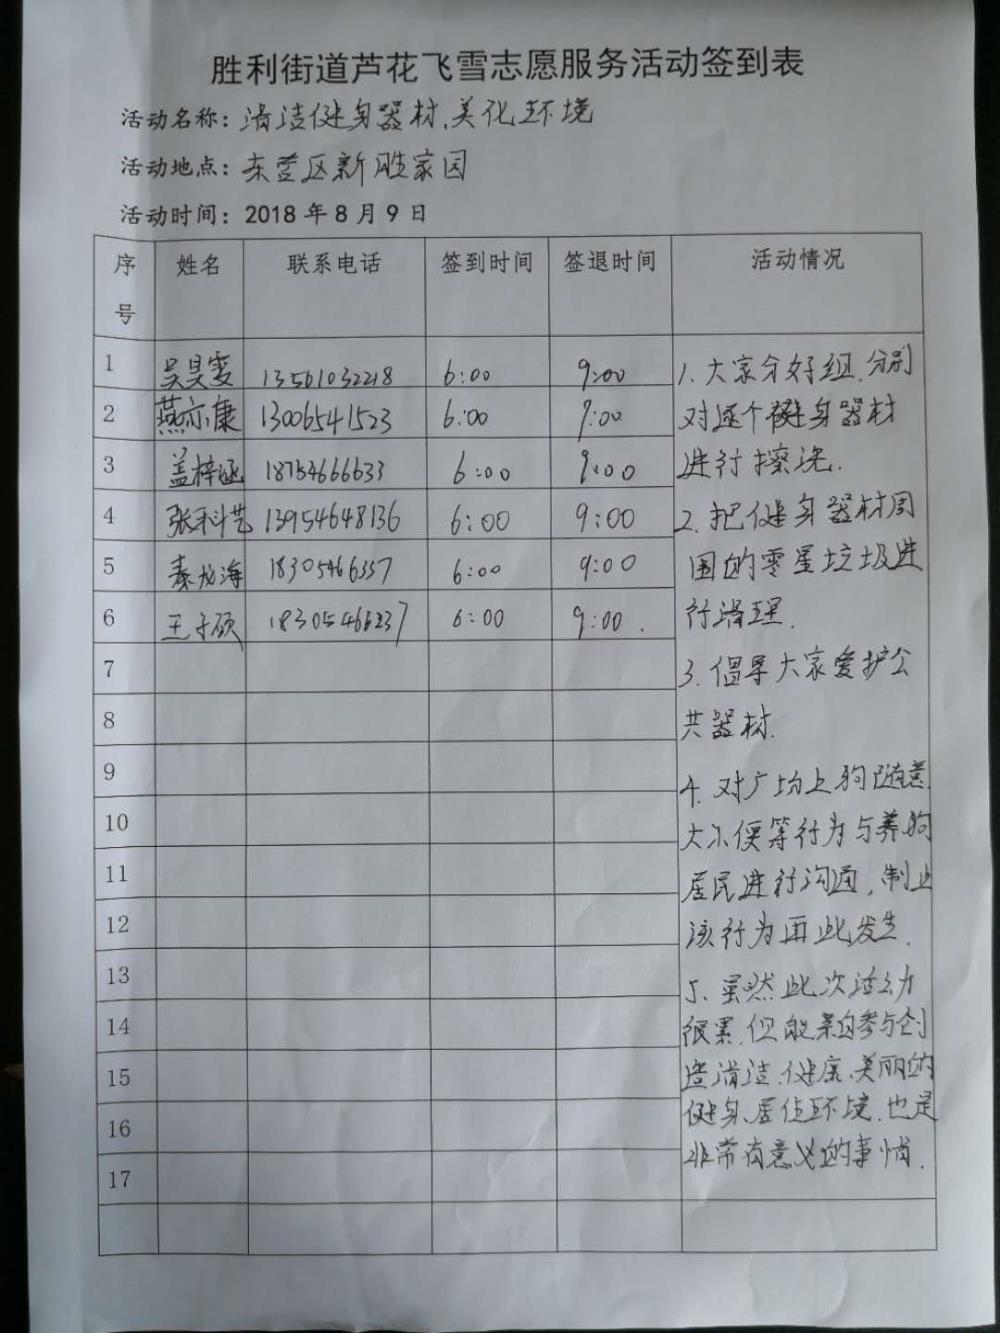 胜利街道芦花飞雪志愿服务活动签到表
活动名称：清洁健身器材、美化环境
活动地点：东营区新胜家园
活动时间：2018年8月9日
序号 姓名 联系电话 签到时间 签退时间 活动情况
1 吴昊雯 13561032218 6:00 9:00
2 燕亦康 13006541523 6:00 9:00
3 盖梓涵 18754666633 6:00 9:00
4 张科艺 13954648136 6:00 9:00
5 秦龙海 18305466337 6:00 9:00
6 王子硕 18305466237 6:00 9:00.
7
8
9
10
11
12
13
14
15
16
17
1.大家分好组,分别
对逐个健身器材
进行擦洗.
2.把健身器材周
围的零星垃圾进
行清理.
3.倡导大家爱护公
共器材.
4.对广场上狗随意
大小便等行为与养狗
居民进行沟通,制止
该行为再此发生.
5.虽然此次活动
很累,但能亲自参与创
造清洁、健康、美丽的
健身、居住环境,也是
非常有意义的事情.